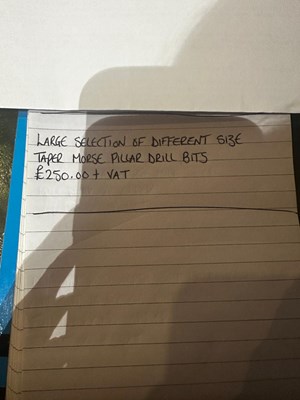 LARGE SELECTION OF DIFFERENT SIZE
TAPER MORSE PILLAR DRILL BITS
£250.00 + VAT